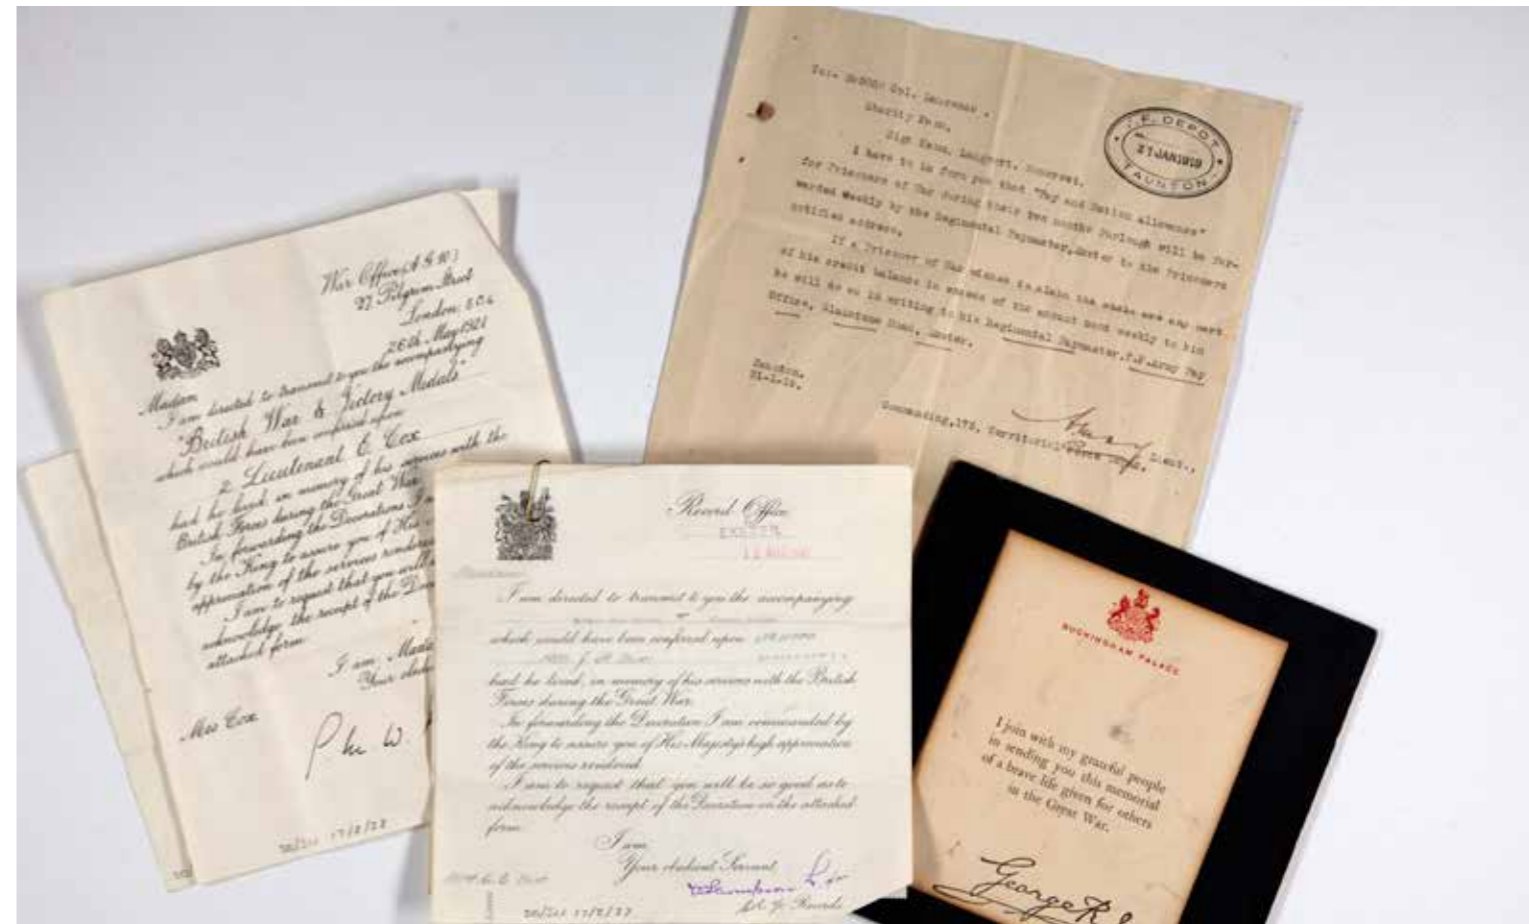 War Office (A.G.10)
27 Pilgrim Street
London. E.C.4
26th May 1921
Madam
I am directed to transmit to you the accompanying
"British War & Victory Medals"
which would have been conferred upon
2. Lieutenant E Cox
had he lived in memory of his services with the
British Forces during the Great War.
In forwarding the Decorations I
by the King to assure you of His
appreciation of the services rendered
I am to request that you will
acknowledge the receipt of the
attached form
I am, Mada
Your obedi
Mrs Cox
20/Inf 17/2/23
Cpl. Laurence.
Charity Farm,
High Ham, Langport, Somerset.
I have to inform you that "Pay and Ration allowance"
for Prisoners of War during their two months furlough will be for-
warded weekly by the Regimental Paymaster, Exeter to the Prisoners
notified address.
If a Prisoner of War wishes to claim the whole or any part
of his credit balance in excess of the amount sent weekly to him
he will do so in writing to his Regimental Paymaster, T.F. Army Pay
Office, Blackboy Road, Exeter.
Taunton.
21-1-19.
Lieut.,
Commanding, 175, Territorial Force Depot.
T.F. DEPOT
21 JAN 1919
TAUNTON
Record Office
EXETER
I am directed to transmit to you the accompanying
which would have been conferred upon
had he lived, in memory of his services with the British
Forces during the Great War.
In forwarding the Decoration I am commanded by
the King to assure you of His Majesty's high appreciation
of the services rendered.
I am to request that you will be so good as to
acknowledge the receipt of the Decoration on the attached
form.
I am,
Your obedient Servant,
i/c Records
BUCKINGHAM PALACE
I join with my grateful people
in sending you this memorial
of a brave life given for others
in the Great War.
George R.I.